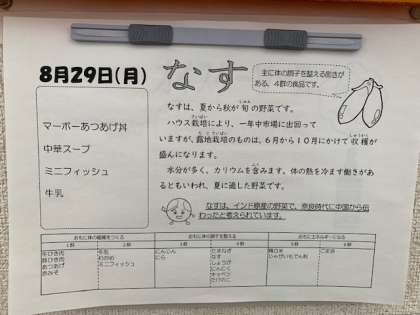 8月29日(月)
なす
主に体の調子を整える働きが
ある、4群の食品です。
マーボーあつあげ丼
中華スープ
ミニフィッシュ
牛乳
なすは、夏から秋が旬の野菜です。
ハウス栽培により、一年中市場に出回って
いますが、露地栽培のものは、6月から10月にかけて収穫が
盛んになります。
水分が多く、カリウムを含みます。体の熱を冷ます働きがあ
るともいわれ、夏に適した野菜です。
なすは、インド原産の野菜で、奈良時代に中国から伝
わったと考えられています。
おもに体の組織をつくる
おもに体の調子を整える
おもにエネルギーになる
1群 2群 3群 4群 5群 6群
牛ひき肉
豚ひき肉
あつあげ
赤みそ
牛乳
わかめ
ミニフィッシュ
にんじん
にら
たまねぎ
なす
しょうが
にんにく
たけのこ
精白米
じゃがいもでん粉
ごま油